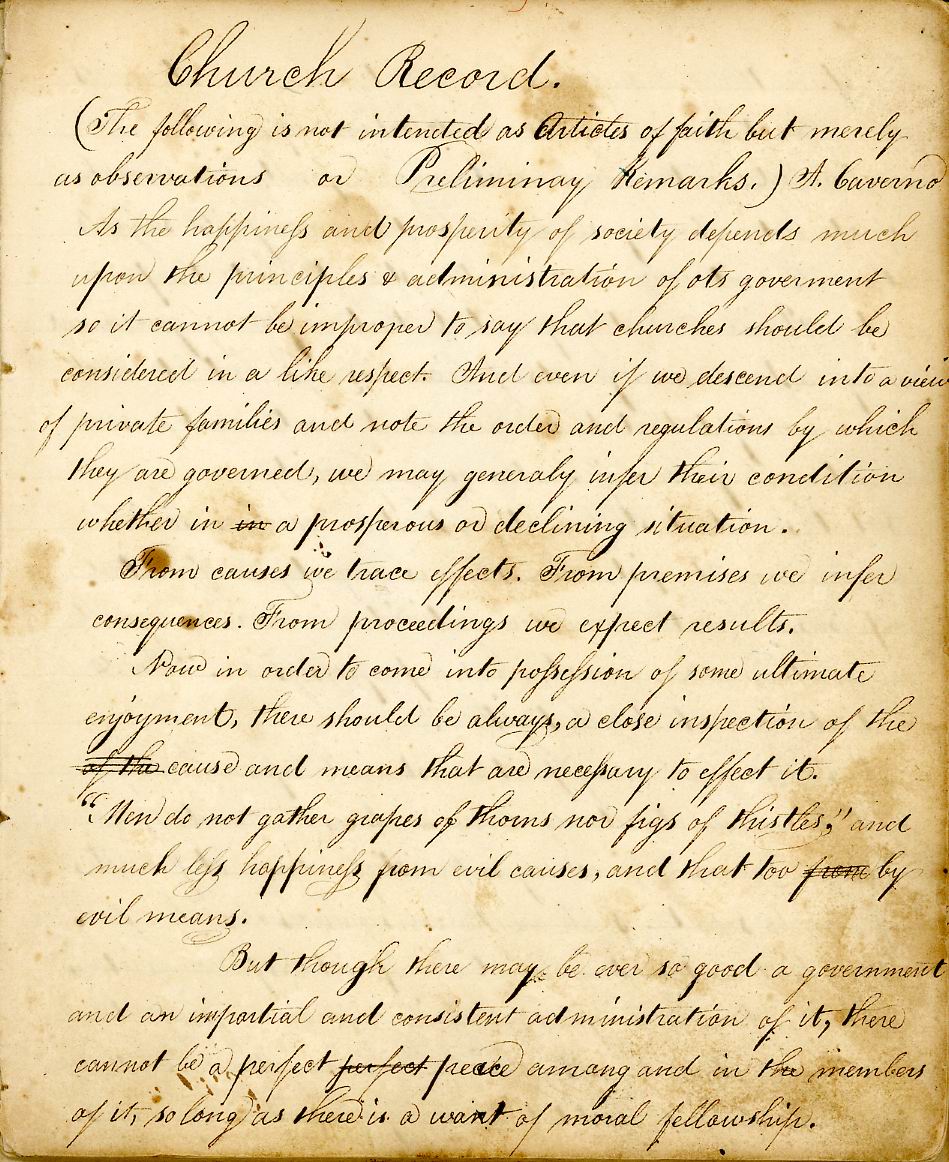 Church Record.
(The following is not intended as Articles of faith but merely
as observations or Preliminay Remarks.) A. Caverno
As the happiness and prosperity of society depends much
upon the principles & administration of ots goverment
so it cannot be improper to say that churches should be
considered in a like respect. And even if we descend into a view
of private families and note the order and regulations by which
they are governed, we may generaly infer their condition
whether in in a prosperous or declining situation.
From causes we trace effects. From premises we infer
consequences. From proceedings we expect results.
Now in order to come into possession of some ultimate
enjoyment, there should be always, a close inspection of the
of the cause and means that are necessary to effect it.
"Men do not gather grapes of thorns nor figs of thistles," and
much less happiness from evil causes, and that too from by
evil means.
But though there may be ever so good a government
and an impartial and consistent administration of it, there
cannot be a perfect perfect peace among and in the members
of it, so long as there is a want of moral fellowship.